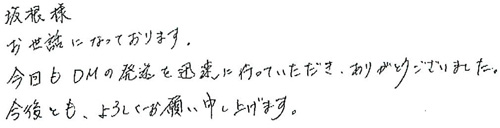 坂根様
お世話になっております。
今回もDMの発送を迅速に行っていただき、ありがとうございました。
今後とも、よろしくお願い申し上げます。